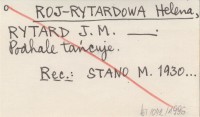 ROJ-RYTARDOWA Helena,
RYTARD J. M. —.
Podhale tańczuje.
Rec.: STANO M. 1930...